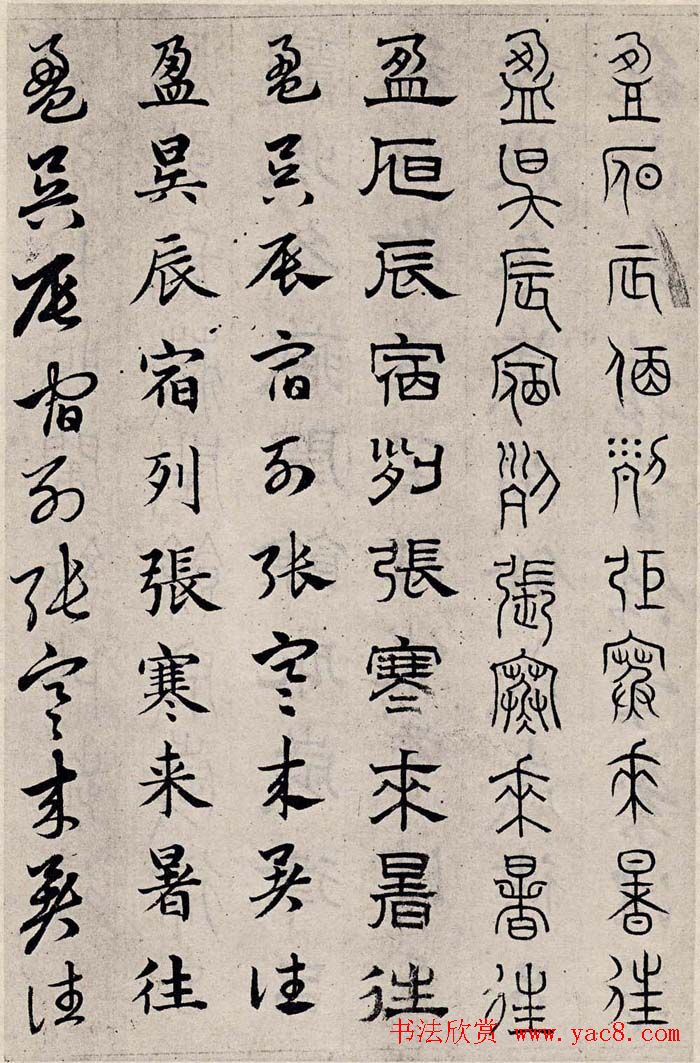 盈昃辰宿列張寒來暑往
盈昃辰宿列張寒來暑往
盈昃辰宿列張寒來暑往
盈昃辰宿列張寒來暑往
盈昃辰宿列張寒来暑往
盈昃辰宿列張寒來暑往
书法欣赏 www.yac8.com